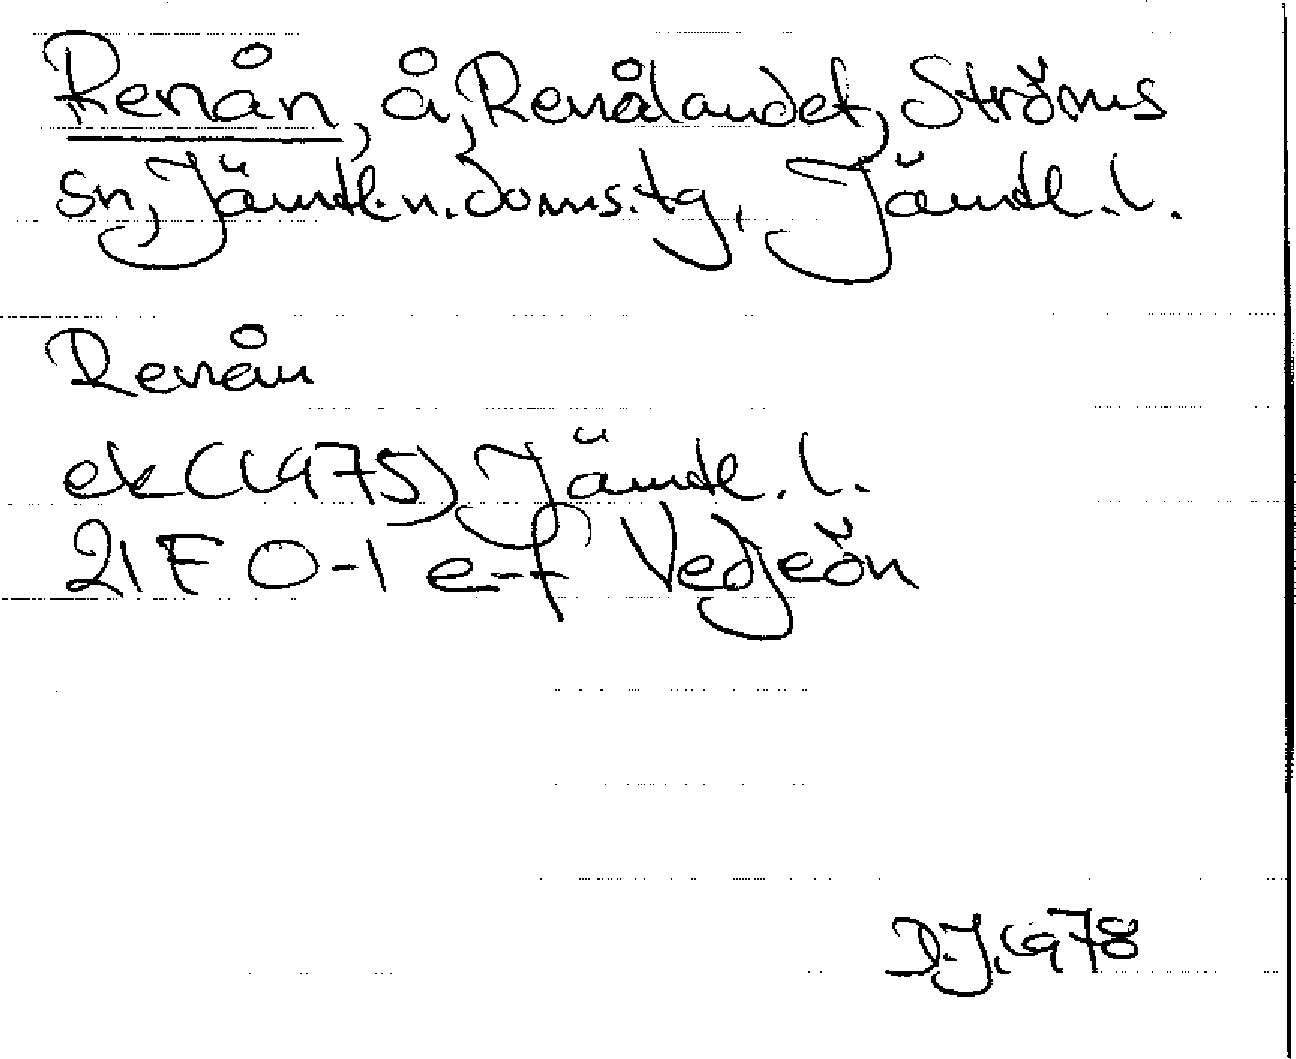 Renån, å, Renålandet, Ströms
sn, Jämtl.n.doms.tg, Jämtl.l.
Renån
ek (1975) Jämtl.l.
21F 0-1 e-f Vedjeön
D.J. 1978